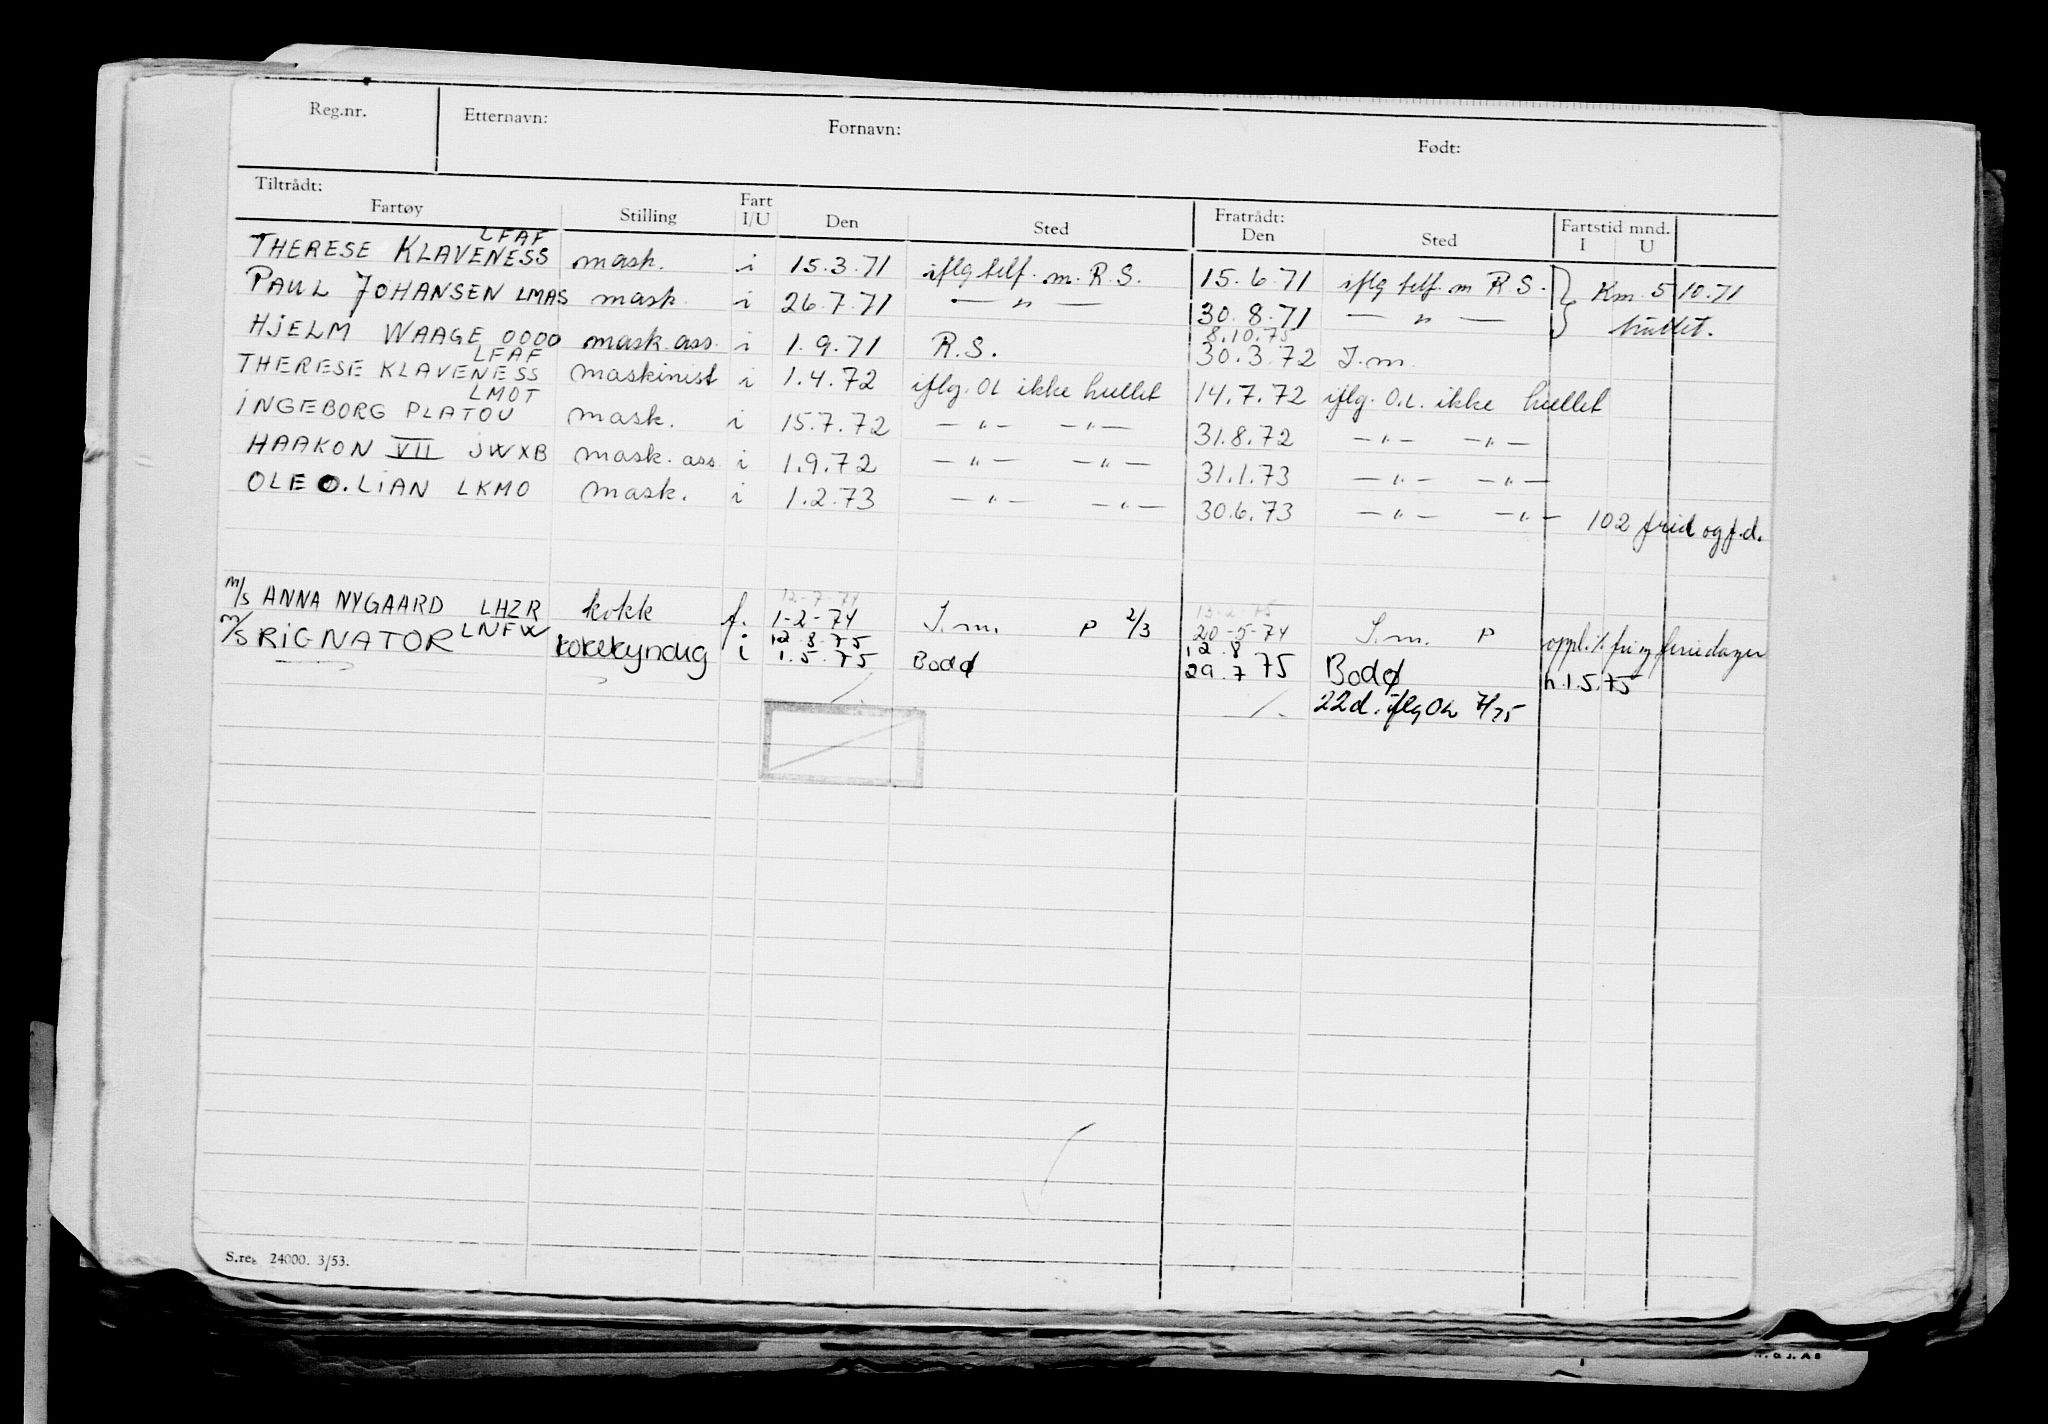 Reg.nr. Etternavn: Fornavn: Født:
Tiltrådt: Fratrådt: Fartstid mnd.
Fartøy Stilling Fart I/U Den Sted Den Sted I U
THERESE KLAVENESS LFAF mask. i 15.3.71 iflg telf. m. R.S. 15.6.71 iflg telf. m R S. } Km. 5/10.71
PAUL JOHANSEN LMAS mask. i 26.7.71 — " — 30.8.71 — " — hullet.
8.10.75
HJELM WAAGE OOOO mask.ass. i 1.9.71 R.S. 30.3.72 I.m.
THERESE KLAVENESS LFAF maskinist i 1.4.72 iflg. OL ikke hullet 14.7.72 iflg. O.L. ikke hullet
INGEBORG PLATOU LMOT mask. i 15.7.72 — " — — " — 31.8.72 — " — — " —
HAAKON VII JWXB mask. ass i 1.9.72 — " — — " — 31.1.73 — " — — " —
OLE O. LIAN LKMO mask. i 1.2.73 — " — — " — 30.6.73 — " — — " — 102 frid og f.d.
12-7-74 13-2-75
m/s ANNA NYGAARD LHZR kokk f. 1-2-74 I.m. P 2/3 20-5-74 I.m. P oppl. % fri og feriedager
12.8.75 12.8
m/s RIGNATOR LNFW kokekyndig i 1.5.75 Bodø 29.7 75 Bodø h.1.5.75
22d. iflg OL 7/75
S.reg. 24000. 3/53.